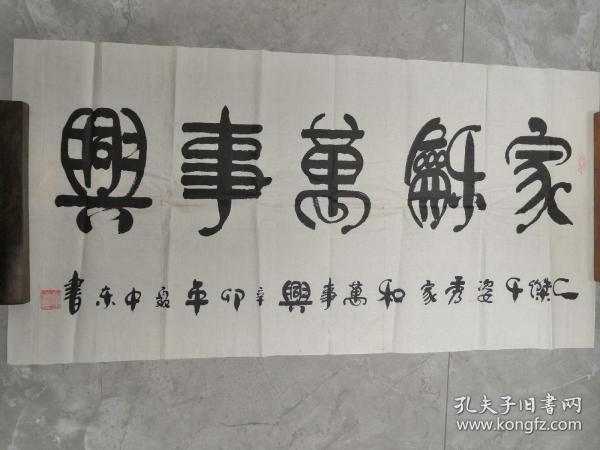 家龢萬事興
傑千姿秀家和萬事興辛卯年中东書
孔夫子旧书网
www.kongfz.com